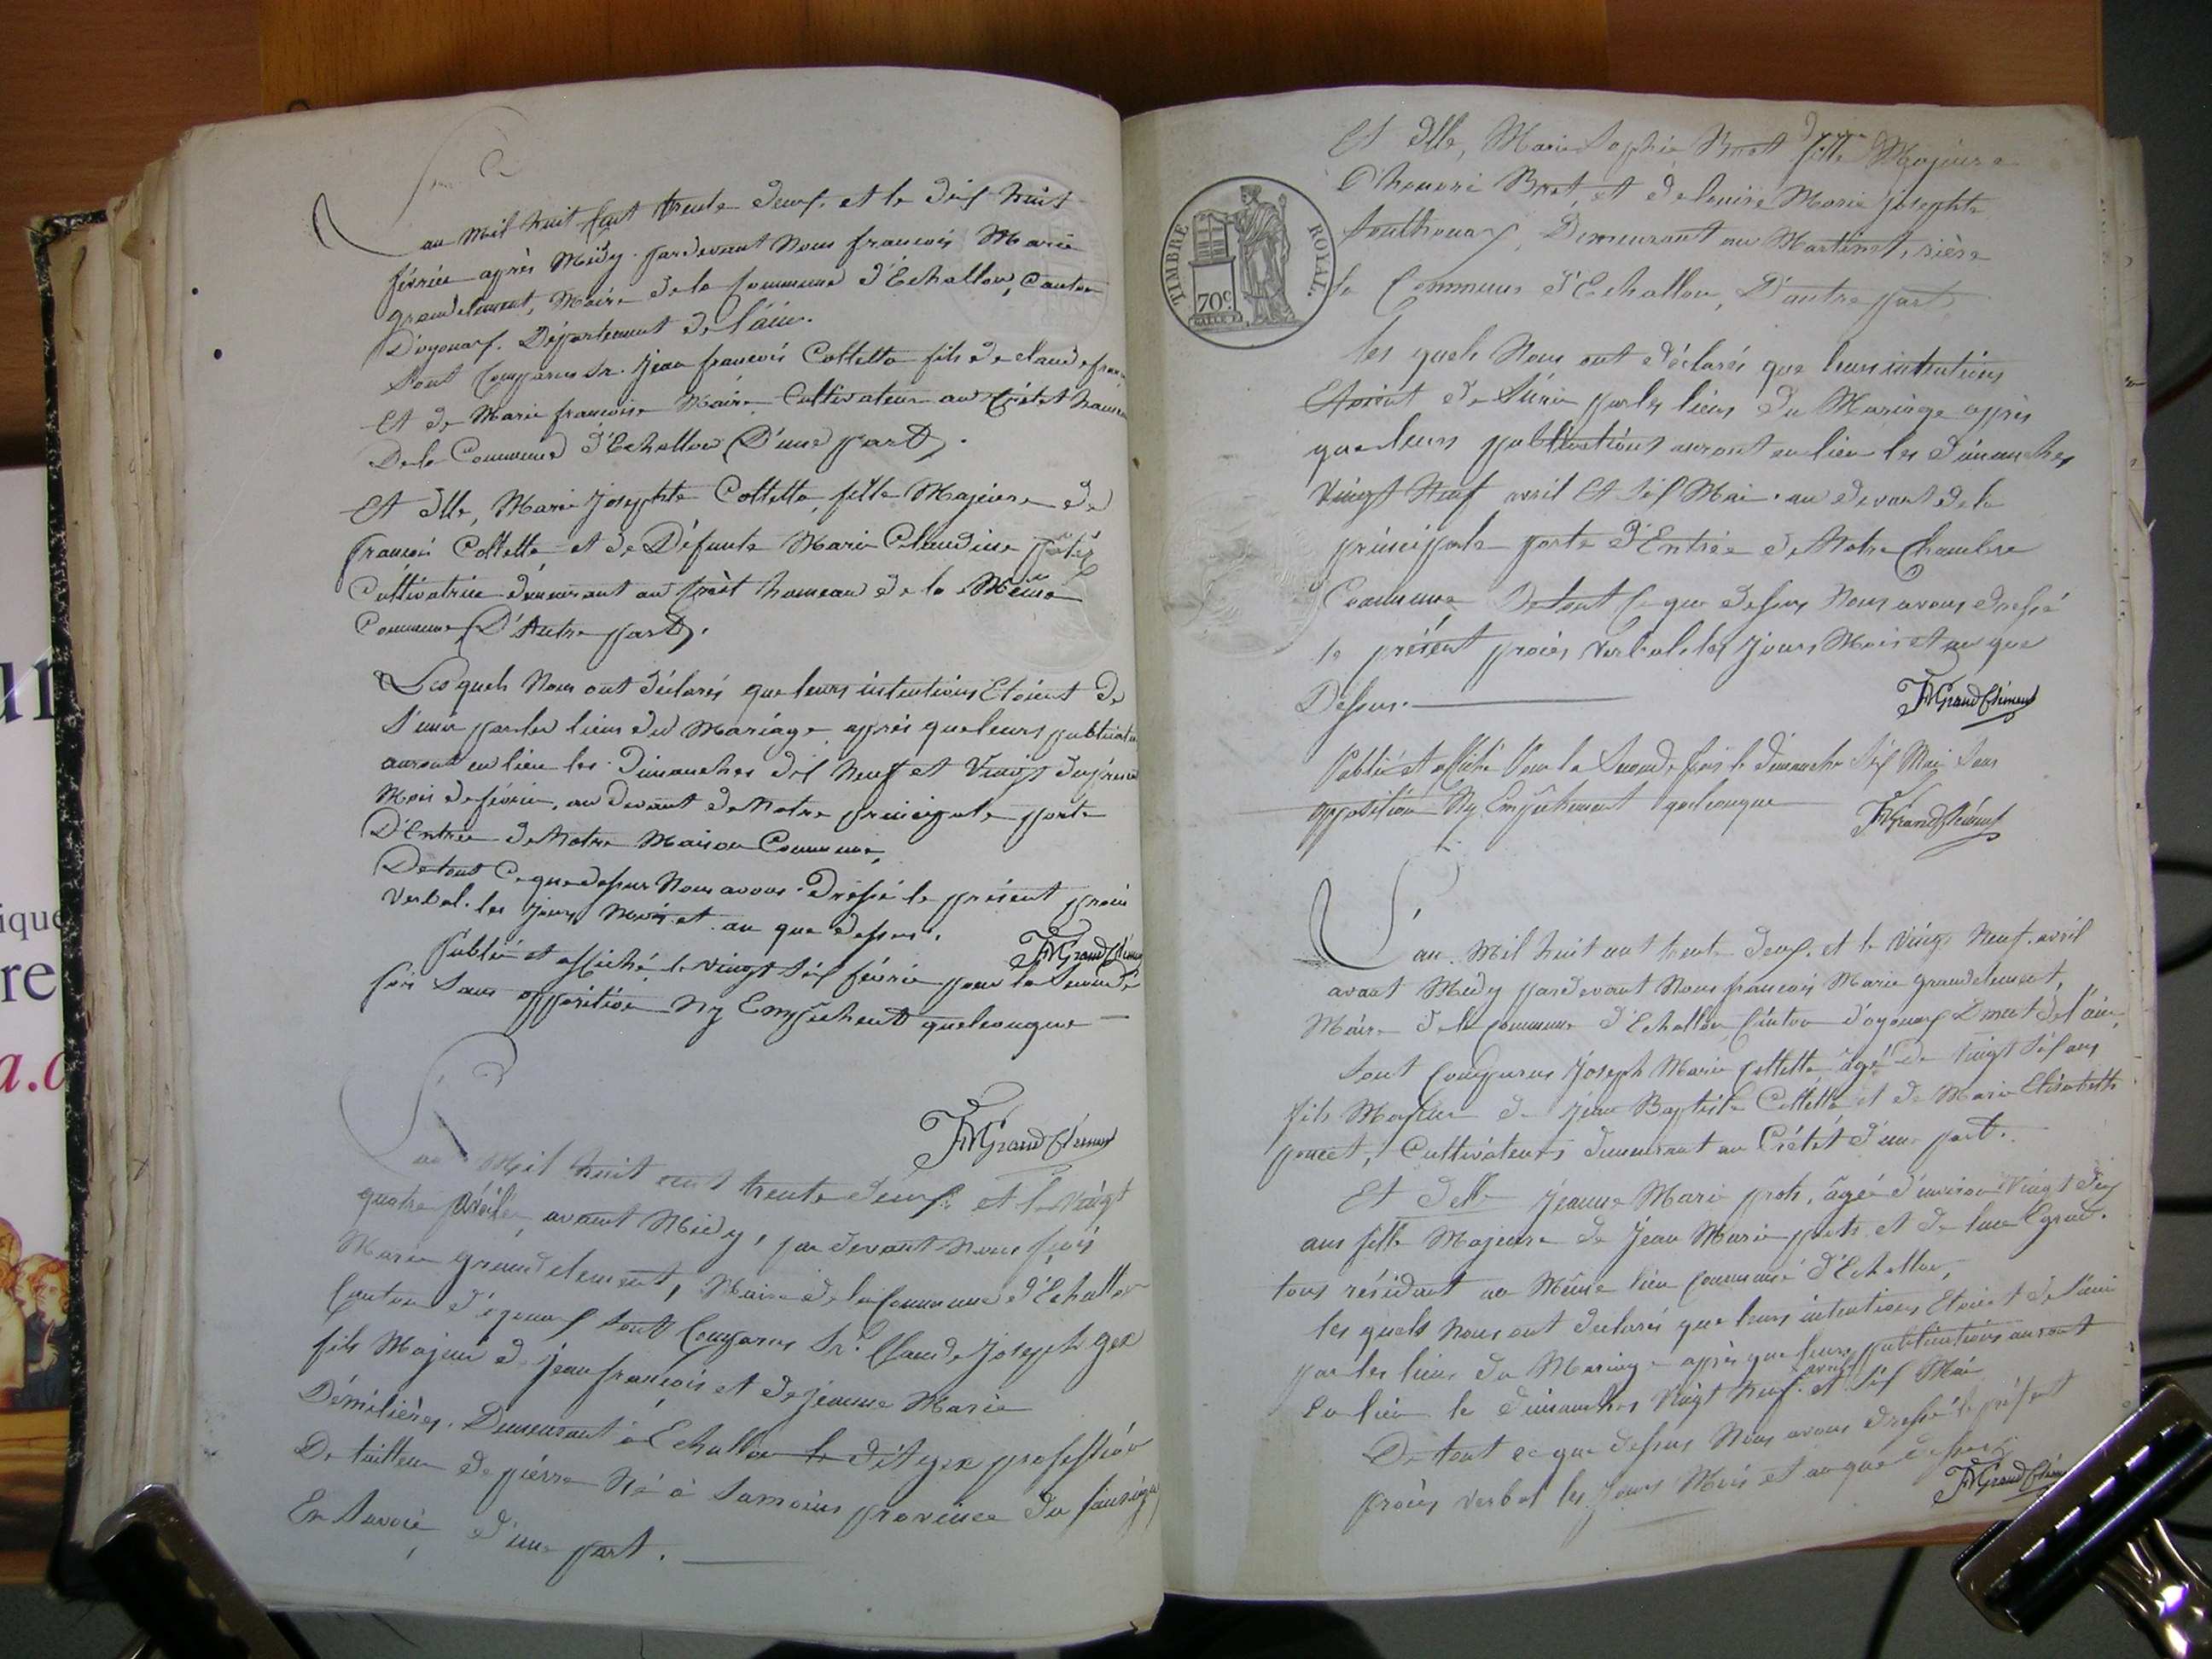 L'an mil huit cent trente deux et le dix huit
février après Midy. pardevant Nous francois Marie
grandclement, Maire de la Commune d'Echallon, Canton
D'oyonax. Département de l'ain.
Sont Comparus Sr. Jean francois Colletta fils de claude
Et de Marie francoise Maire Cultivateur au Crétet hameau
De la Commune d'Echallon D'une part.
Et dlle, Marie Josephte Colletta, fille Majeure de
François Colletta et de Défunte Marie Claudine
Cultivatrice demeurant au Crêt hameau de la Même
Commune D'Autre part.
Les quels Nous ont déclarés que leurs intentions Etoient de
S'unir par les liens du Mariage après que leurs
auront eu lieu les Dimanches dix Neuf et Vingt du présent
Mois de février, au devant de Notre principale porte
D'Entrée de Notre Maison Commune,
De tout Ce que dessus Nous avons Dressé le présent procès
Verbal. les jours Mois et an que dessus.
FMGrandClément
Publié et affiché le vingt Six février pour la Seconde
fois Sans opposition Ny Empêchent quelconque
FMGrandClément
L'an Mil huit cent trente deux et le Vingt
quatre avant Midy, par devant Nous fçois
Marie grandclement, Maire de la Commune d'Echallon
Canton d'oyonax Sont Comparus Sr. Claude Joseph gex
fils Majeur de jean françois et de jeanne Marie
Démilières. Demeurant à Echallon dit gex profession
De tailleur de pierre Né à Samoins province du
En Savoie, d'une part.
Et dlle, Marie Sophie Fille Majeure
D'honoré et de Marie josephte
Demeurant au Martinet, rière
la Commune d'Echallon, D'autre part
les quels Nous ont déclarés que leurs intentions
Etoient de S'unir par les liens du Mariage après
que leurs publications auront eu lieu les dimanches
Vingt Neuf avril Et Six Mai. au devant de la
principale porte d'Entrée de Notre Chambre
Commune De tout Ce que dessus Nous avons dressé
le présent procès Verbal les Jours Mois et an que
Dessus.
FMGrandClément
Publié et affiché Pour la Seconde fois le dimanche Six Mai Sans
opposition Ny Empêchement quelconque
FMGrandClément
L'an Mil huit cent trente deux et le Vingt Neuf avril
avant Midy pardevant Nous francois Marie grandclement,
Maire de la Commune d'Echallon Canton d'oyonax Dment de l'ain,
Sont Comparus Joseph Marie Colletta âgé de vingt Six ans
fils Majeur de Jean Baptiste Colletta et de Marie Elisabeth
poncet, Cultivateurs demeurant au Crétet d'une part.
Et Delle Jeanne Marie âgée d'environ Vingt
ans fille Majeure de Jean Marie et de
tous résidant au Même lieu Commune d'Echallon,
les quels Nous ont déclarés que leurs intentions Etoient de S'unir
par les liens du Mariage après que leurs publications auront
Eu lieu le dimanches Vingt Neuf avril et Six Mai
De tout ce que dessus Nous avons dressé le présent
procès verbal les Jours Mois et an que dessus
FMGrandClément
TIMBRE ROYAL.
70c